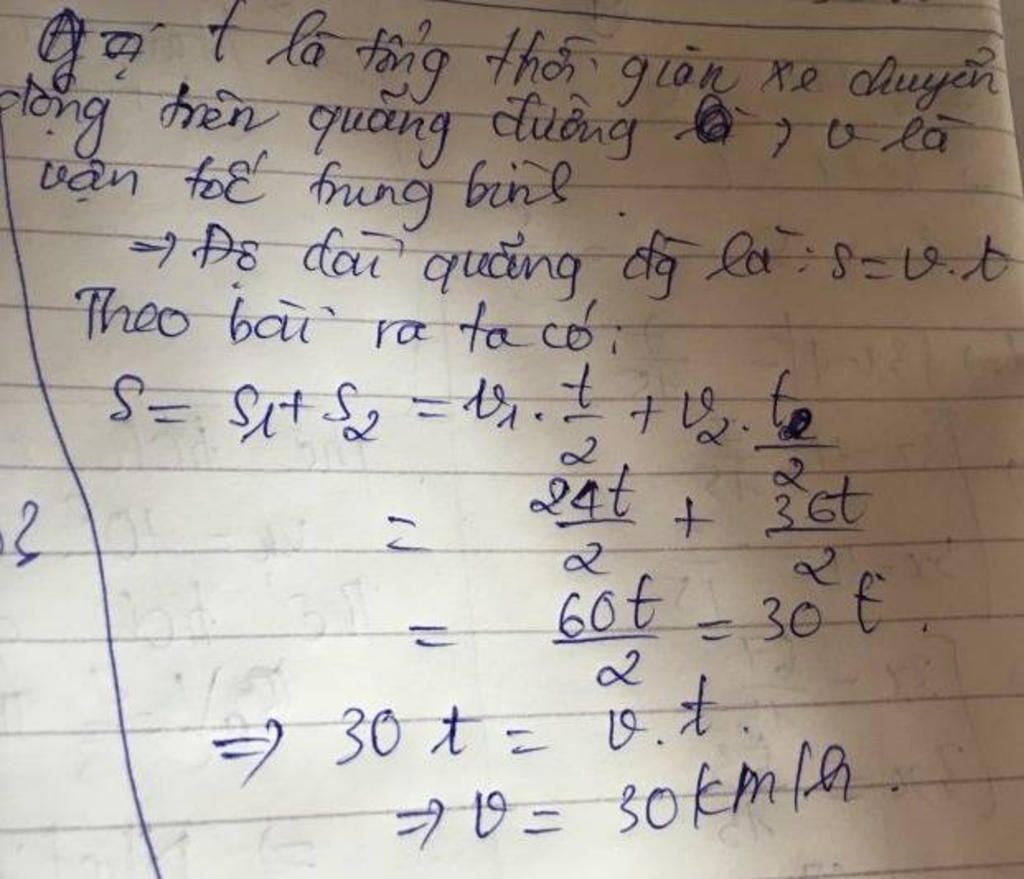 Gọi t là tổng thời gian xe chuyển
động trên quãng đường , v là
vận tốc trung bình.
⇒ Độ dài quãng đg là: s = v.t
Theo bài ra ta có:
S = S₁ + S₂ = v₁. t/2 + v₂. t/2
= 24t/2 + 36t/2
= 60t/2 = 30 t.
⇒ 30 t = v.t.
⇒ v = 30 km/h.